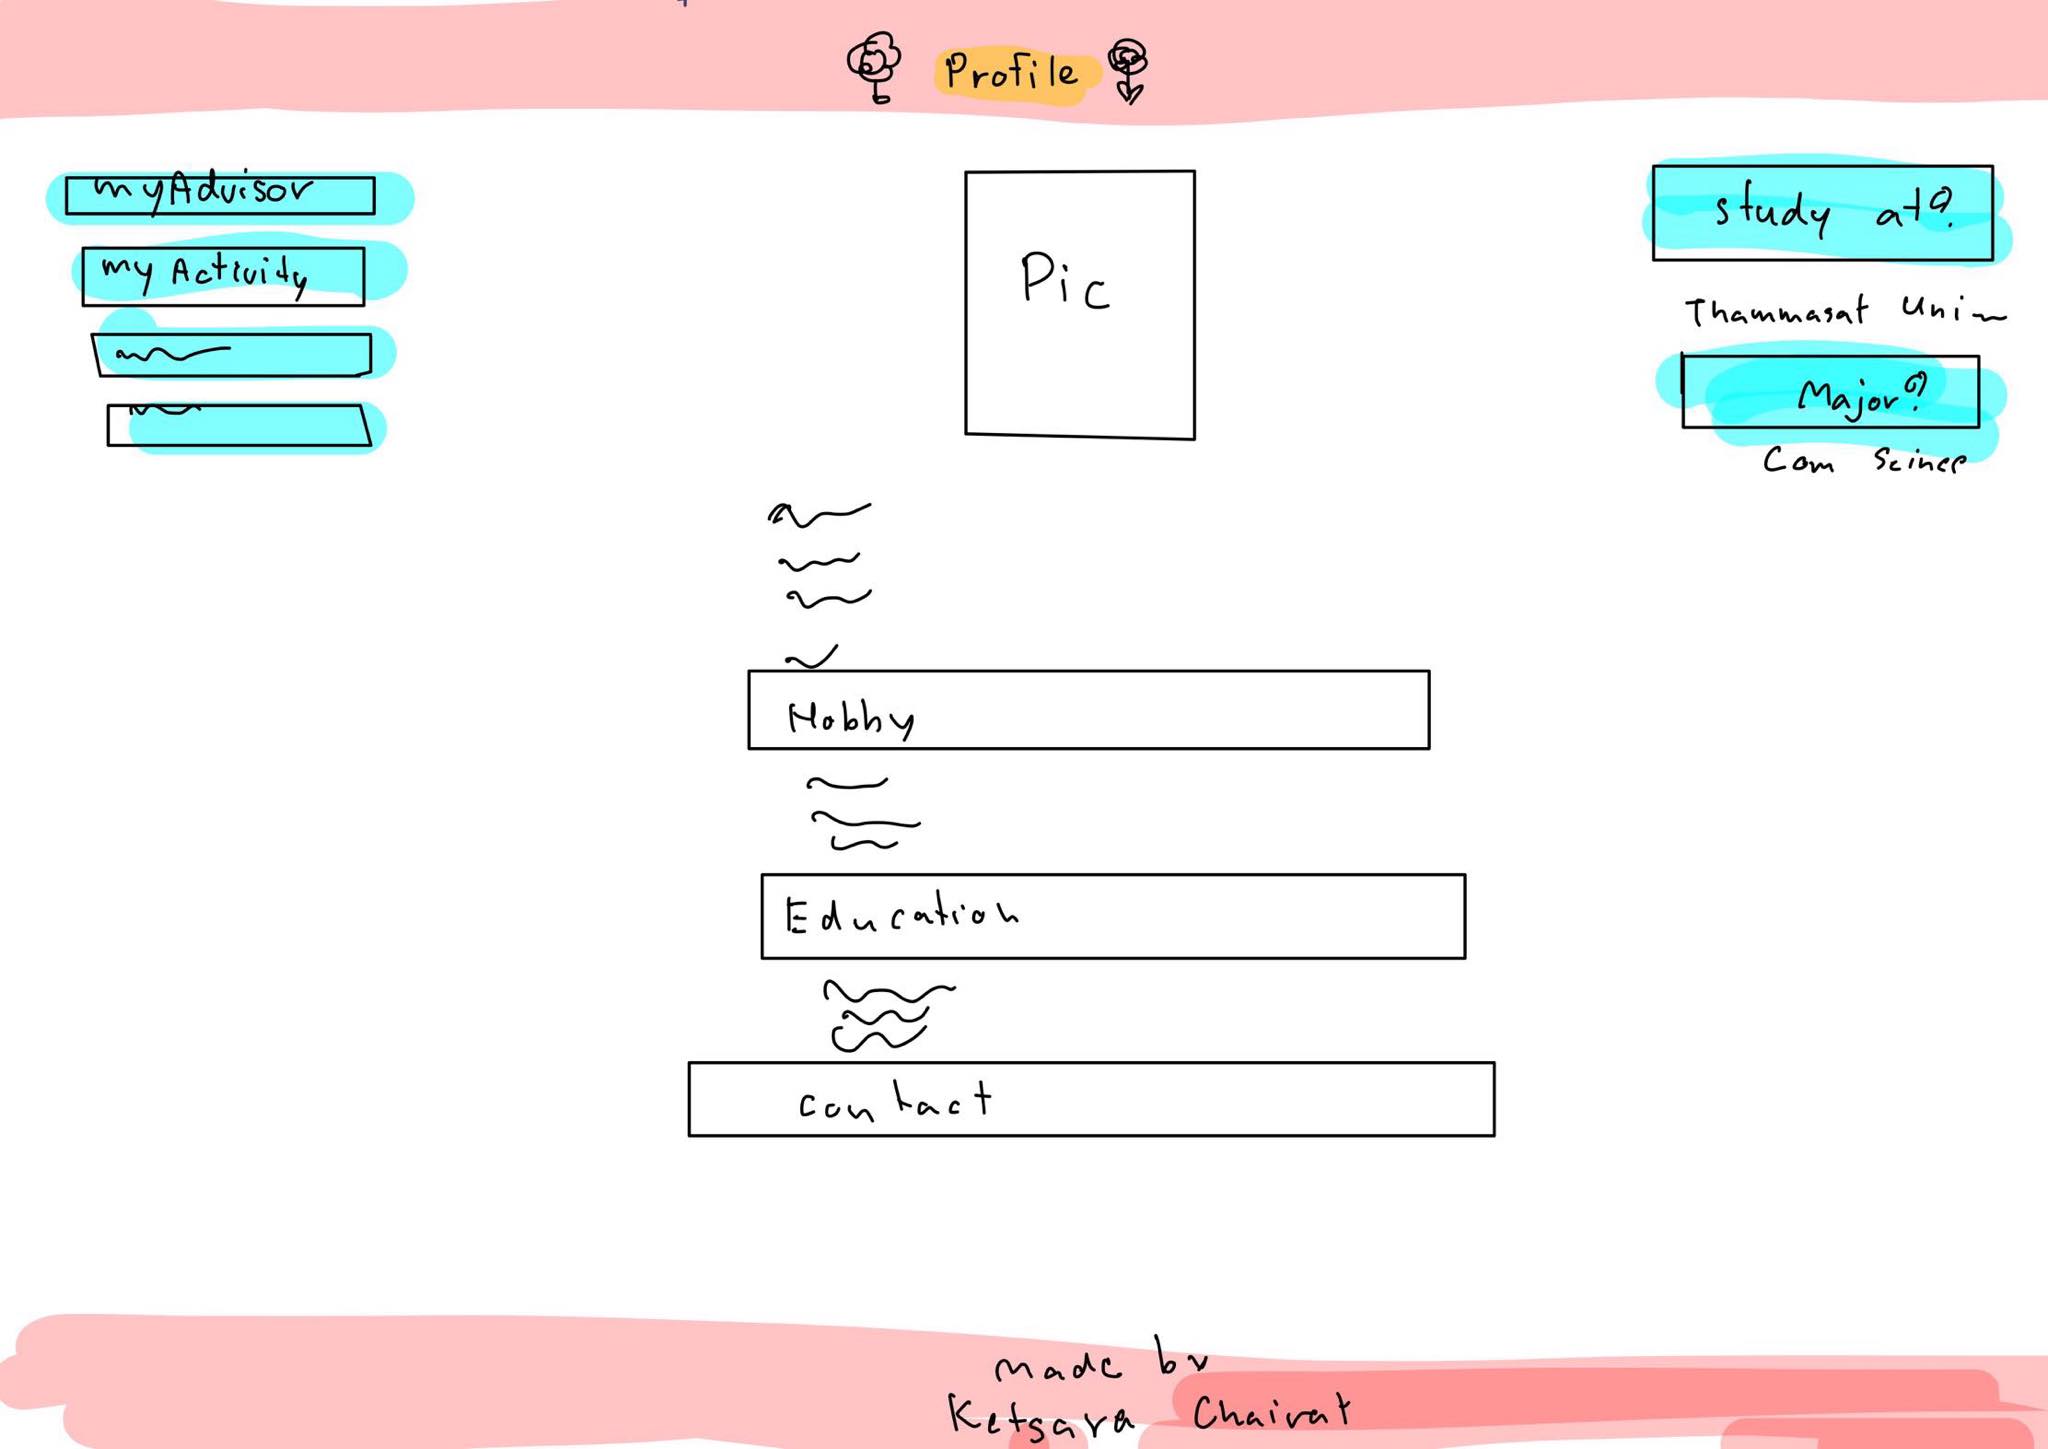 Profile
myAdvisor
my Activity
Pic
study at?
Thammasat Uni
Major?
Com Scince
Hobby
Education
contact
made by
Ketsara Chairat